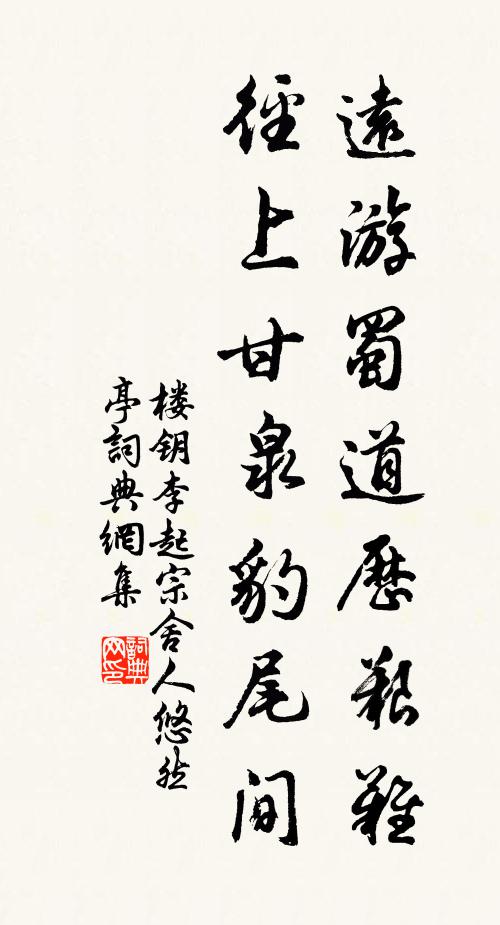 遠游蜀道歷艱難
徑上甘泉豹尾間
楼钥李起宗舍人悠然
亭詞典網集
詞典
网印